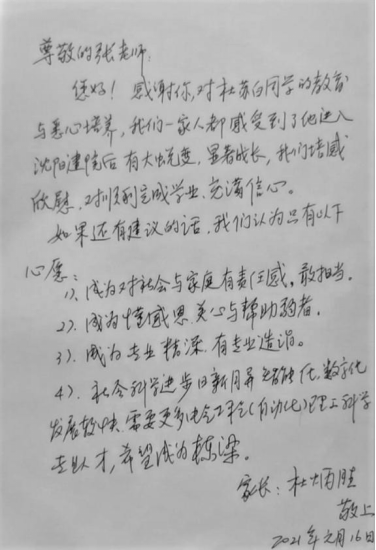 尊敬的张老师:
您好! 感谢你,对杜苏白同学的教育
与悉心培养,我们一家人都感受到了他进入
沈阳建院后有大蜕变,显著成长,我们倍感
欣慰,对顺利完成学业,充满信心。
如果还有建议的话,我们认为只有以下
心愿:
1)、成为对社会与家庭有责任感,敢担当。
2)、成为懂感恩,关心与帮助弱者。
3)、成为专业精深,有专业造诣。
4)、社会科学进步日新月异,智能化、数字化
发展较快,需要更多(自动化)理工科学
专业人才,希望成为栋梁。
家长:杜炳胜
敬上
2021年元月16日